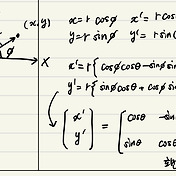 (x,y)
x = r cosϕ x' = r cos
y = r sinϕ y' = r sin(
X
ϕ
x' = r{cosϕcosθ - sinϕsin
y' = r{sinϕcosθ + cosϕsin
(x' y') = [cosθ -sin
sinθ cosθ